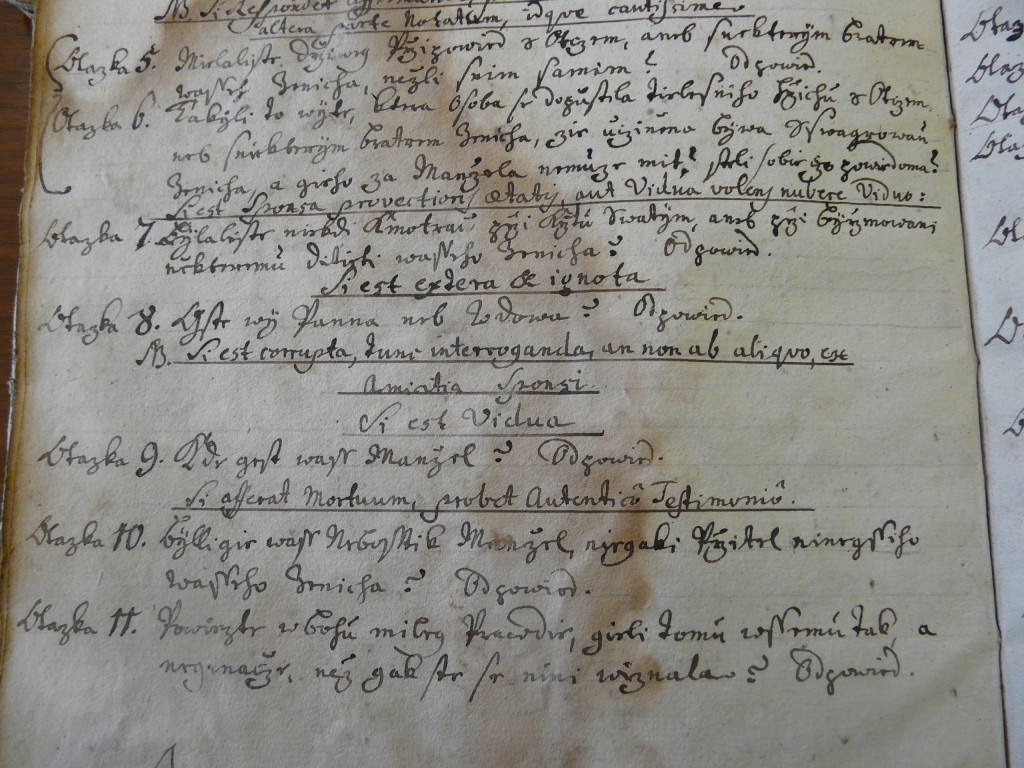 NB. Si Respondet
altera parte Notatum, idque cautissime.
Otazka 5. Mielaliste Připowied s Otczem, aneb s niekterym bratrem
wasseho Zenicha, nežli s nim samim? Odpowied.
Otazka 6. Takyli to wyte, ktera Osoba se dopustila tielesniho Hržichu s Otczem
neb s niekterym bratrem Zenicha, že uzinena bywa Sswagrowau
Zenicha, a gieho za Manžela nemuže mit? gsteli sobie powiedoma?
Si est Sponsa provectioris aetatis, aut Vidua volens nubere Viduo:
Otazka 7. Bylaliste niekdi Kmotrau při Křtu Swatym, aneb při Biřmowani
niekteremu ditieti wasseho Zenicha? Odpowied.
Si est extera & ignota
Otazka 8. Gste wy Panna neb Wdowa? Odpowied.
NB. Si est corrupta, tunc interroganda, an non ab aliquo, ex
Amicitia Sponsi.
Si est Vidua
Otazka 9. Kde gest wass Manžel? Odpowied.
Si asserat Mortuum, probet Autentico Testimonio.
Otazka 10. Bylligie wass Neboſstik Manžel, niegaki Přitel ninegssiho
wasseho Zenicha? Odpowied.
Otazka 11. Powiezte w bohu mileg Prawdie, gieli tomu wssemu tak, a
neginacze, než gak ste se nini wiznala? Odpowied.